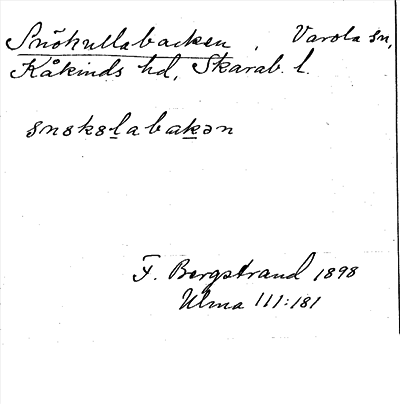 Snökullabacken, Varola sn,
Kåkinds hd, Skarab. l.
snøkslabakən
F. Bergstrand 1898
Ulma 111:181